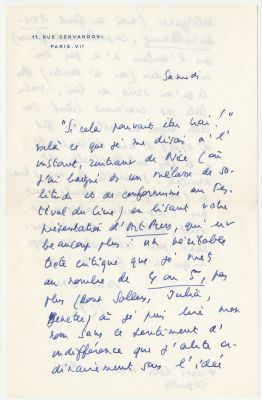 11, RUE SERVANDONI
PARIS. VIᵉ
Samedi
"Si cela pouvait être vrai !"
voilà ce que je me disais à l'
instant, rentrant de Nice (où
j'ai baigné ds un mélasse de so-
litude et de conformisme au Fes-
tival du Livre) en lisant votre
présentation d'Art Press, qui est
beaucoup plus : un véritable
texte critique que je mets
au nombre de 4 ou 5, pas
plus (dont Sollers, Julia,
Genette) où je puis lire mon
nom sans ce sentiment d'
indifférence que j'alerte or-
dinairement sans l'idée